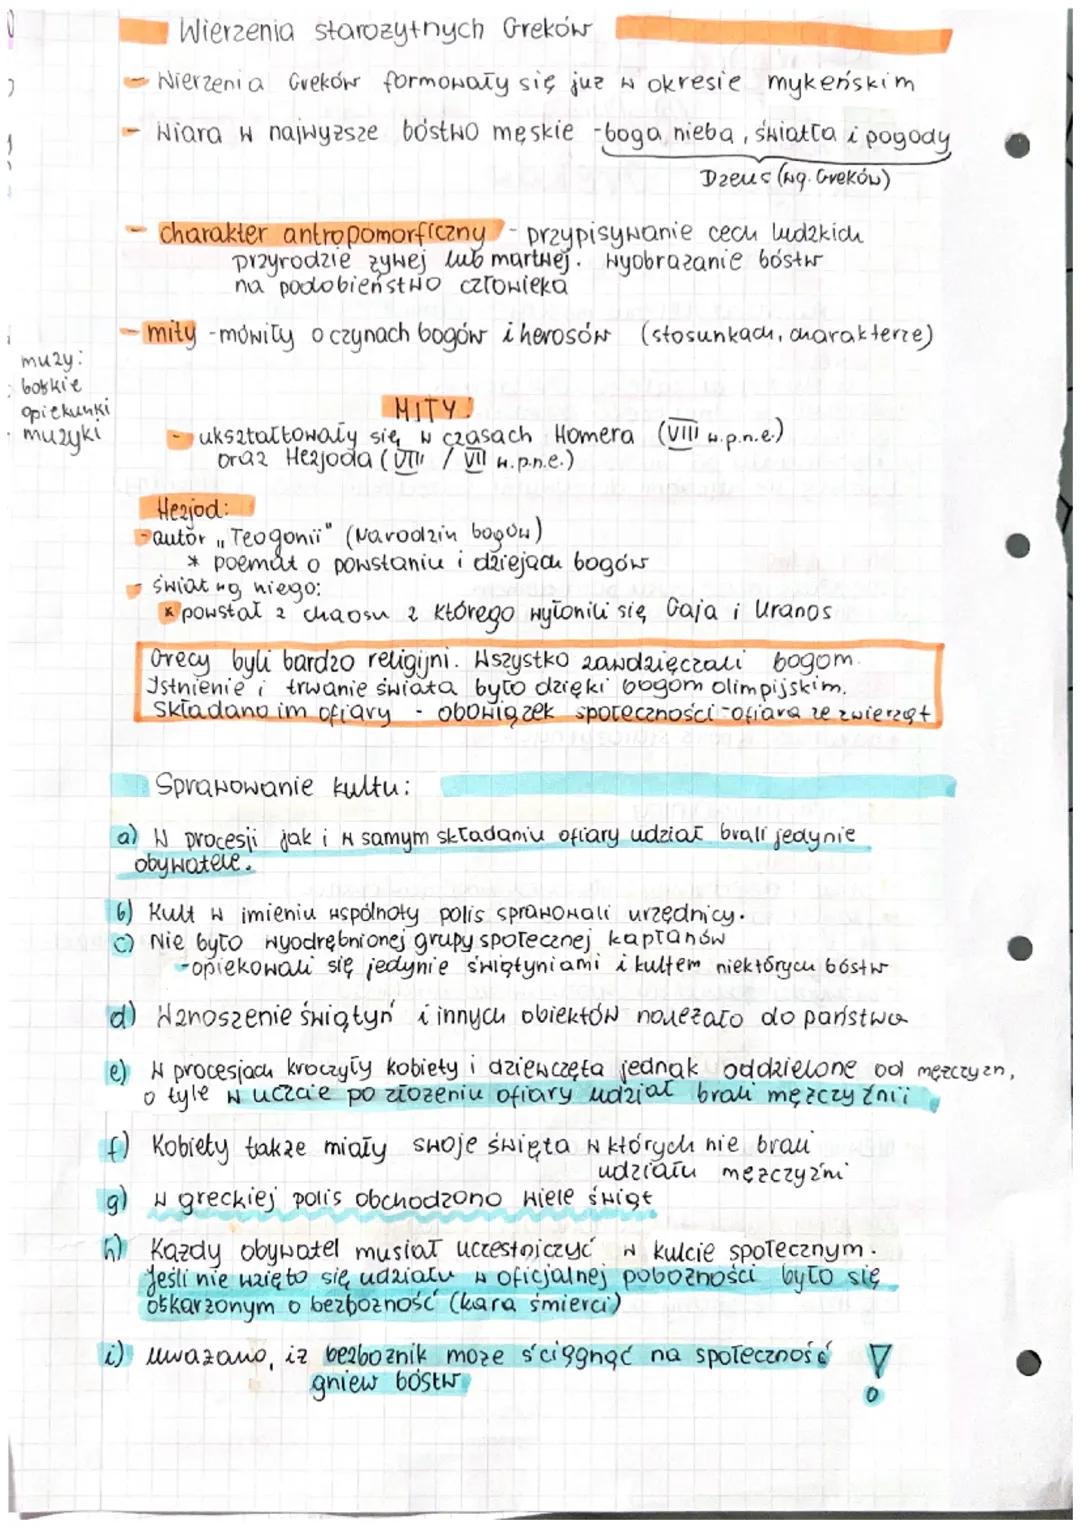 Wierzenia starożytnych Greków
- Wierzenia Greków formowały się już w okresie mykeńskim
- Wiara w najwyższe bóstwo męskie - boga nieba, światła i pogody
Dzeus (wg. Greków)
- charakter antropomorficzny - przypisywanie cech ludzkich
przyrodzie żywej lub martwej. wyobrażanie bóstw
na podobieństwo człowieka
- mity - mówiły o czynach bogów i herosów (stosunkach, charakterze)
muzy:
boskie
opiekunki
muzyki
MITY:
- ukształtowały się w czasach Homera (VIII w.p.n.e.)
oraz Hezjoda (VIII / VII w.p.n.e.)
Hezjod:
- autor „Teogonii" (Narodzin bogów)
* poemat o powstaniu i dziejach bogów
- świat wg niego:
* powstał z chaosu z którego wyłonili się Gaja i Uranos
Grecy byli bardzo religijni. Wszystko zawdzięczali bogom.
Istnienie i trwanie świata było dzięki bogom olimpijskim.
Składano im ofiary - obowiązek społeczności - ofiara ze zwierząt
Sprawowanie kultu:
a) W procesji jak i w samym składaniu ofiary udział brali jedynie
obywatele.
b) Kult w imieniu wspólnoty polis sprawowali urzędnicy.
c) Nie było wyodrębnionej grupy społecznej kapłanów
- opiekowali się jedynie świątyniami i kultem niektórych bóstw
d) Wznoszenie świątyń i innych obiektów należało do państwa
e) W procesjach kroczyły kobiety i dziewczęta jednak oddzielone od mężczyzn,
o tyle w uczcie po złożeniu ofiary udział brali mężczyźnii
f) Kobiety także miały swoje święta w których nie brali
udziału mężczyźni
g) w greckiej polis obchodzono wiele świąt
h) Każdy obywatel musiał uczestniczyć w kulcie społecznym.
Jeśli nie wzięto się udziału w oficjalnej pobożności było się
oskarżonym o bezbożność (kara śmierci)
i) uważano, iż bezbożnik może ściągnąć na społeczność !
gniew bóstw